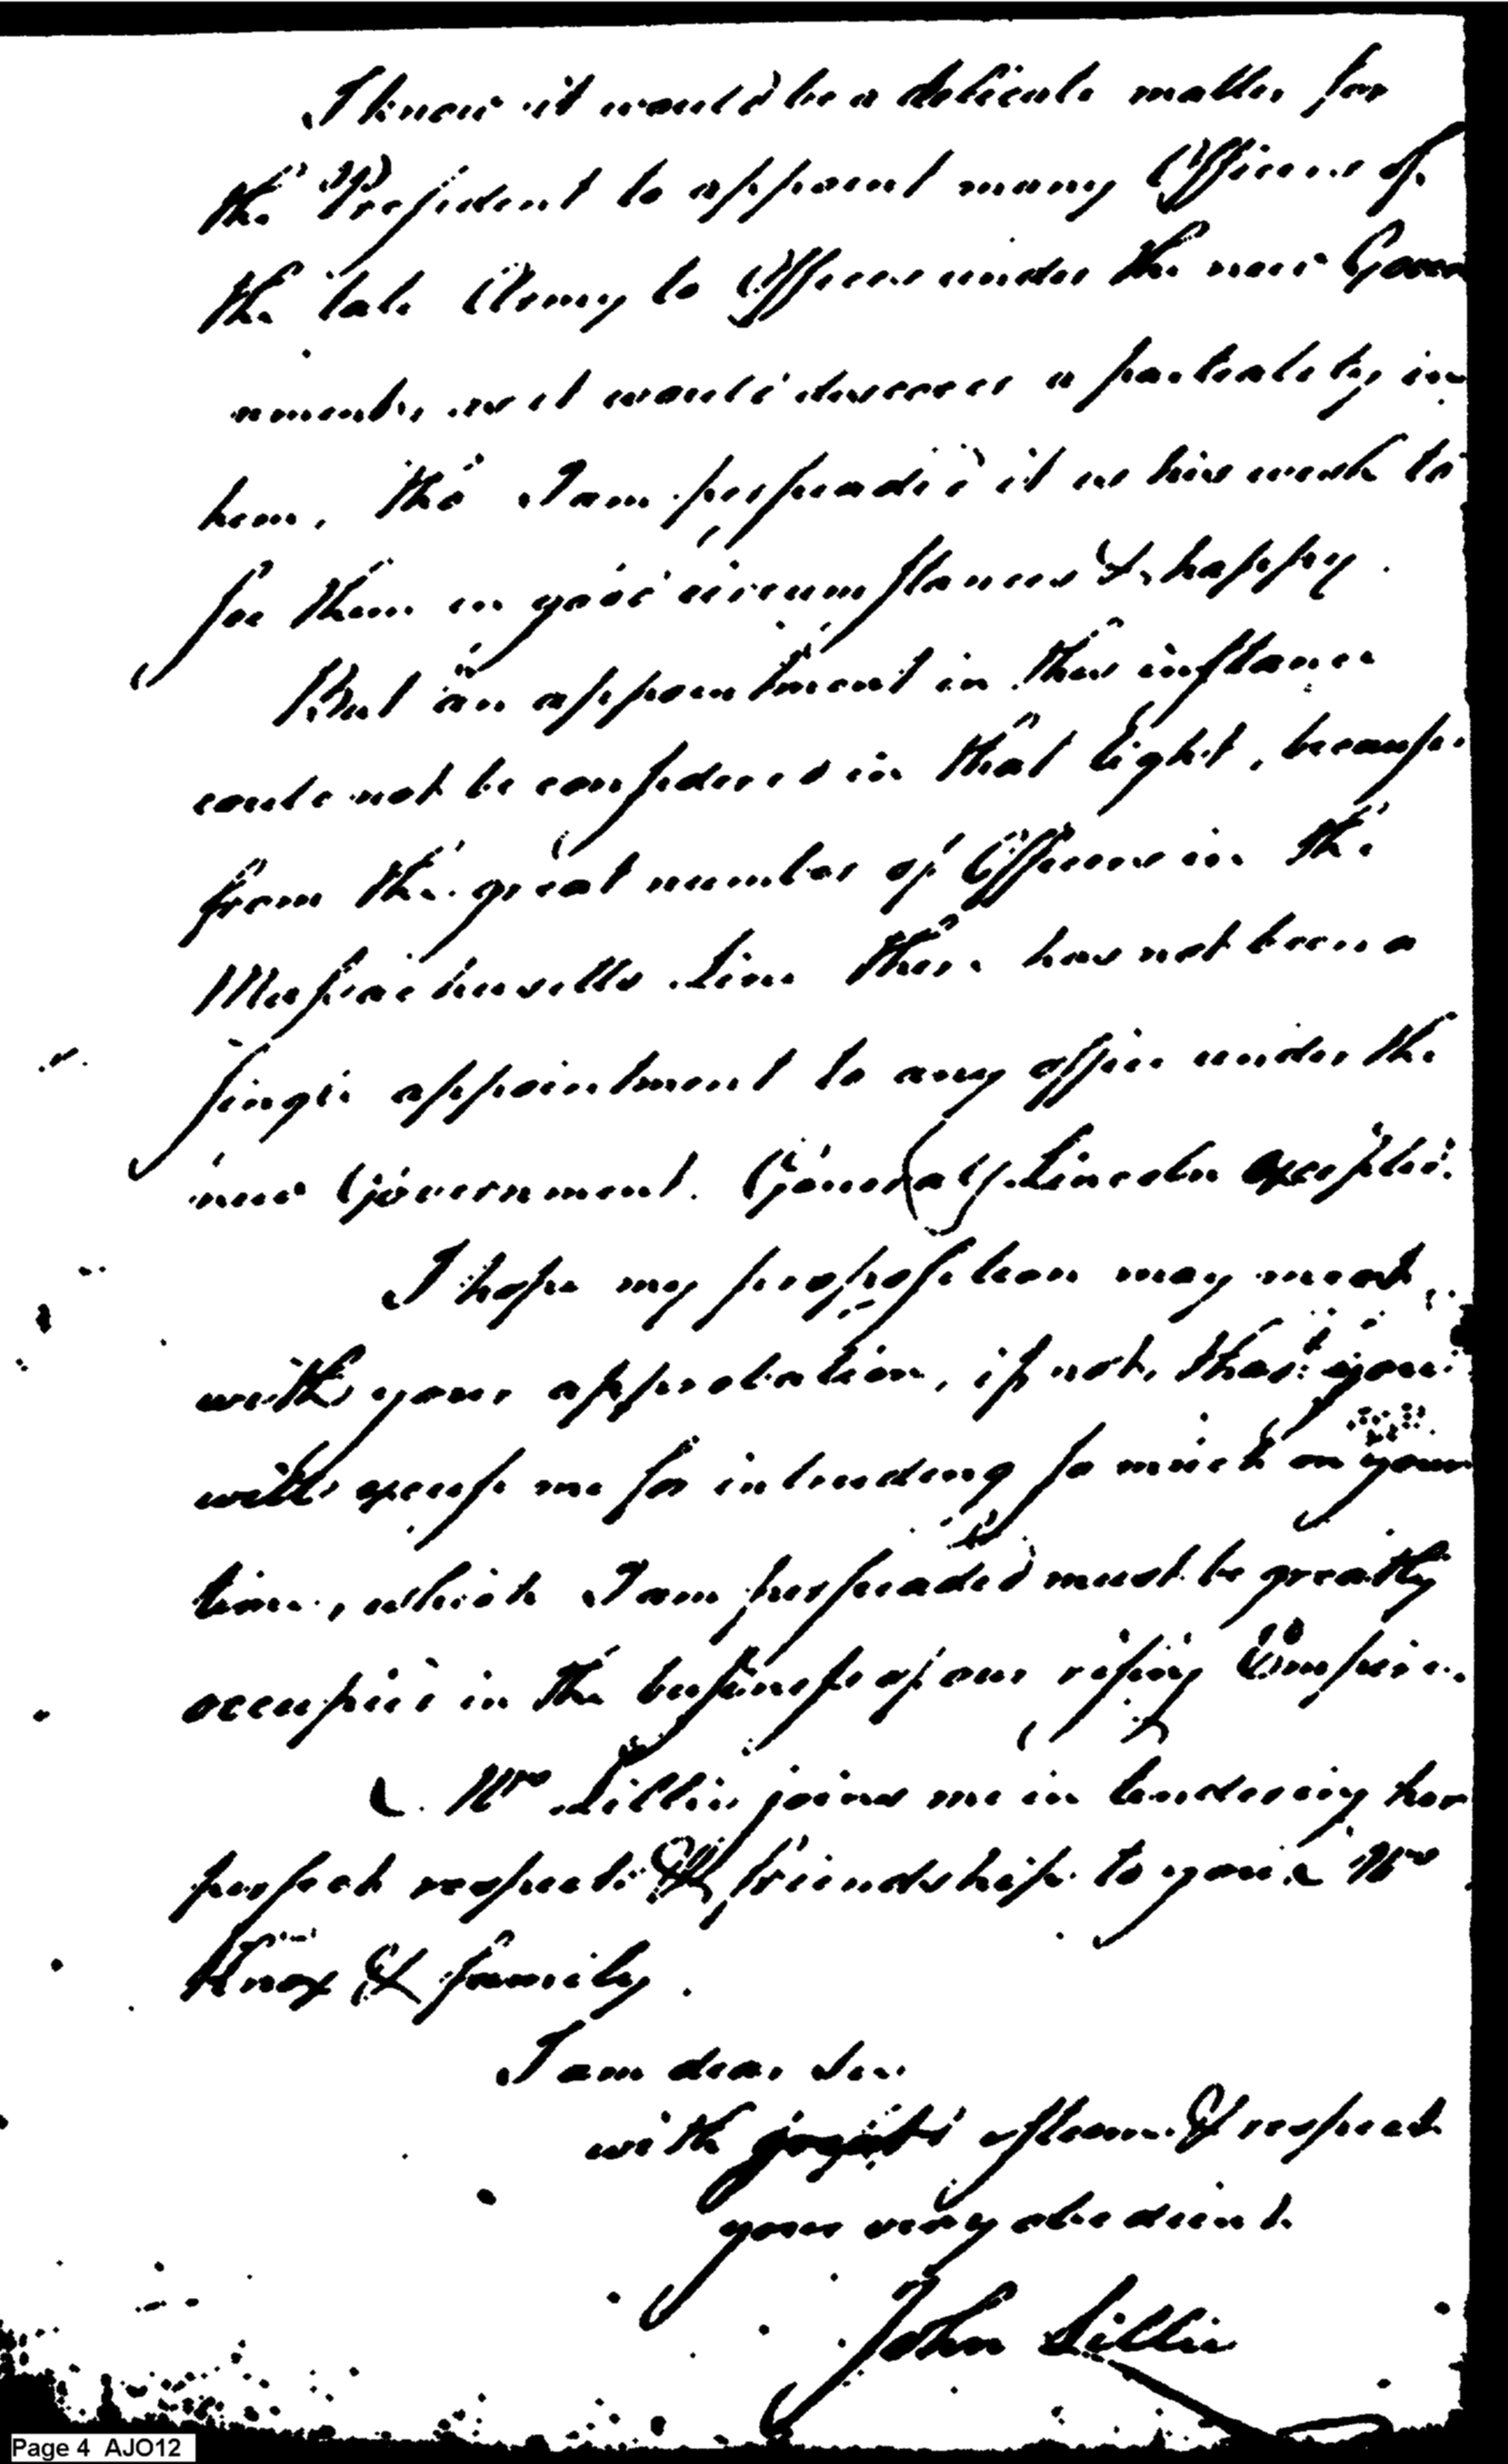 I know it would be a delicate matter for
the President to appoint many Officers of
the late Army to Offices under the new Gover
nment, as it would discover a partiality in
him, tho' I am persuaded it is his wish to
see them in good circumstances & happy.
But an appointment in this instance
could not be considered in that light, because
from the great number of Officers in the
Massachusetts Line there has not been a
single appointment to any office under the
new Government. General Lincoln excepted.
I hope my proposition may meet
with your approbation, if not, that you
will excuse me for intruding so much on your
time, which I am persuaded must be greatly
occupied in the business of our rising Empire.
Mrs Lillie joins me in tendering her
perfect respect & friendship to you & Mrs
Knox & family.
I am dear Sir
with esteem & respect
your very obedient
John Lillie
Page 4 AJO12